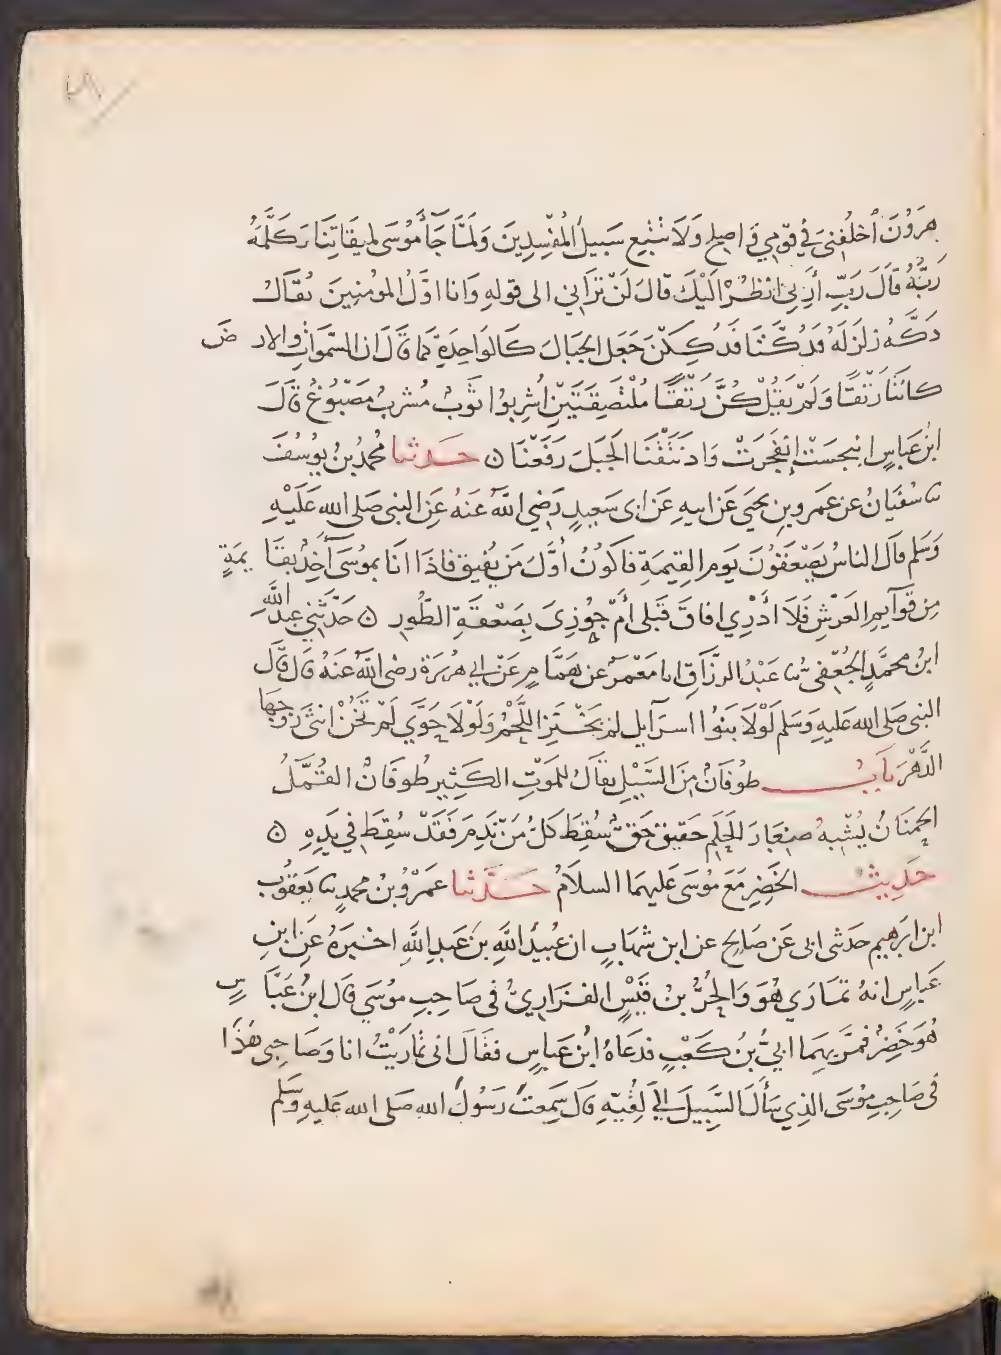 هٰرُونَ اُخْلُفْنِي فِي قَوْمِي وَاصلِح وَلَا تَتَّبِع سَبِيلَ المُفْسِدِينَ وَلَمَّا جَآءَ مُوسَى لِمِيقَاتِنَا وَكَلَّمَهُ
رَبُّهُ قَالَ رَبِّ أَرِنِي أنظُرْ اِلَيْكَ قالَ لَنْ تَرَانِي الى قولهِ وَانا اوَّلُ المومنِينَ يُقَالُ
دَكَّهُ زلزَلَهُ فَدُكَّتَا فَدُكِكْنَ جَعَلَ الجِبَالَ كَالوَاحِدَةِ كَمَا قَالَ ان السَّمَوَاتِ والارض
كانَتَا رَتْقًا وَلَمْ يَقُلْ كُنَّ رَتْقًا مُلْتَصِقَتَيْنِ أُشرِبُوا ثَوبٌ مُشربٌ مَصْبُوغٌ قَالَ
ابنُ عَبَّاسٍ انبجسَتْ إنْفَجَرَتْ وَاذ نَتَقْنَا الجَبَلَ رَفَعْنَا ۞ حَدثنا محمدُ بنُ يوُسُفَ
ثنا سُفيَانُ عن عَمروبنِ يحيَى عَن ابيهِ عَن ابى سَعِيدٍ رَضِي اللَّهُ عَنهُ عَنِ النبى صَلى الله عَلَيْهِ
وَسَلم قالَ الناسُ يَصْعَقُونَ يَومَ القِيمَةِ فاكونُ أوَّلَ مَن يُفيق فاذَا انَا بموسَى آخِذٌ بقَايمَةٍ
مِن قَوآيمِ العَرْشِ فَلَا أدْرِي افاقَ قَبلى أمْ جُوزِىَ بِصَعْقَةِ الطُّورِ ۞ حَدَّثَنِي عبدُ اللَّهِ
ابنُ محمَّدٍ الجُعْفى ثنا عَبْدُ الرزَّاقِ انا مَعْمَرٌ عن هَمَّامٍ عَنْ ابي هُرَيرَةَ رضى اللَّهُ عَنهُ قال قال
النبى صَلى الله عَليهِ وَسَلم لَوْلَا بَنوُا اسرآيل لم يَخْنَزِ اللَّحْمُ وَلَوْلَا حَوَّي لَمْ تَخُنْ انثَى زوجَهَا
الدَّهْرَ بَابُ طُوفَانٌ مِنَ السَّيْلِ يقالُ للمَوْتِ الكَثِيرِ طُوفَانٌ القُمَّلُ
الحمنَانُ يُشْبِهُ صِغَارَ الحَلَم حَقيق حَقٌّ سُقِطَ كلُّ مَنْ نَدِمَ فَقَدْ سُقِطَ في يَدِهِ ۞
حَدِيثُ الخَضِرِ مَعَ مُوسَى عَليهمَا السلاَمُ حَدَّثنا عَمْرُو بنُ محمدٍ ثنا يَعقوُب
ابن ابرَهيم حَدثنى ابى عَن صَالحٍ عن ابن شهَابٍ ان عُبيدَ اللَّهِ بنَ عَبدِ اللَّهِ اخبَرَهُ عَنِ ابنِ
عَباسٍ انهُ تمَارَي هُوَ وَالحُرُّ بنُ قَيْسٍ الفَزَارِيُّ فى صَاحِبِ مُوسَي قال ابنُ عَبَّاسٍ
هُوَ خَضِرٌ فمَرَّ بِهمَا ابيُّ بنُ كَعْبٍ فدعَاهُ ابنُ عَباسٍ فقالَ انى تمارَيْتُ انا وَصَاحبى هٰذَا
فى صَاحِبِ مُوسَى الذِي سَأَلَ السَّبِيلَ الَى لِقُيِّهِ قالَ سَمِعتَ رَسُولَ الله صَلى الله عَليهِ وَسَلم